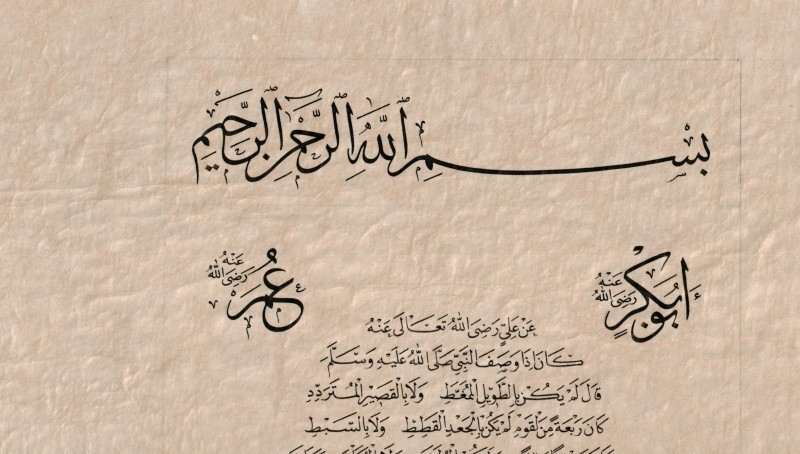 بِسْمِ اللَّهِ الرَّحْمَٰنِ الرَّحِيمِ
أَبُو بَكْرٍ رَضِيَ اللهُ عَنْهُ
عُمَرُ رَضِيَ اللهُ عَنْهُ
عَنْ عَلِيٍّ رَضِيَ اللهُ تَعَالَى عَنْهُ
كَانَ إِذَا وَصَفَ النَّبِيَّ صَلَّى اللهُ عَلَيْهِ وَسَلَّمَ
قَالَ لَمْ يَكُنْ بِالطَّوِيلِ الْمُمَّغِطِ وَلَا بِالْقَصِيرِ الْمُتَرَدِّدِ
كَانَ رَبْعَةً مِنَ الْقَوْمِ لَمْ يَكُنْ بِالْجَعْدِ الْقَطِطِ وَلَا بِالسَّبْطِ